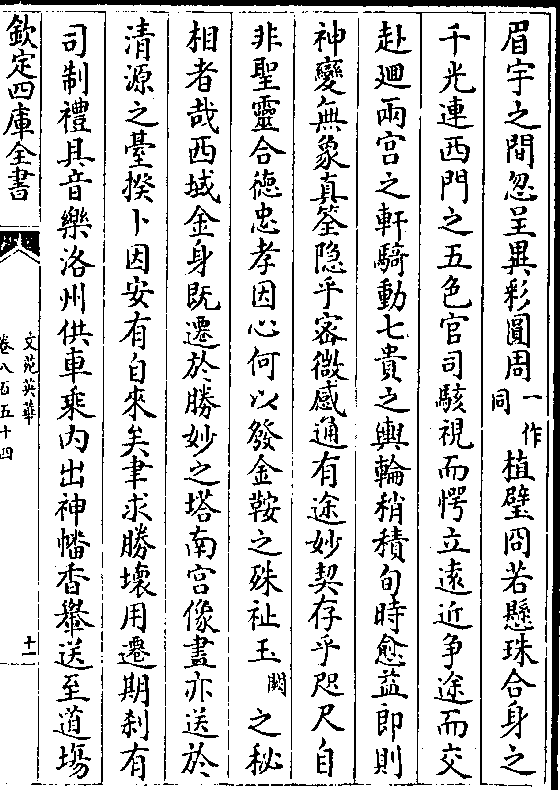 眉宇之間忽呈異彩圓周一作同植璧冏若懸珠合身之
千光連西門之五色官司駭視而愕立遠近争途而交
赴廻兩宫之軒騎動七貴之輿輪稍積旬時愈益即則
神變無象真筌隐乎宻微感通有途妙契存乎咫尺自
非聖靈合徳忠孝因心何以發金鞍之殊祉玉闕之秘
相者哉西域金身既遷於勝妙之塔南宫像畫亦送於
清源之臺揆卜因安有自來矣聿求勝壊用遷期刹有
司制禮具音樂洛州供車乘内出神幡香轝送至道塲
欽定四庫全書
文苑英華
卷八百五十四
十一